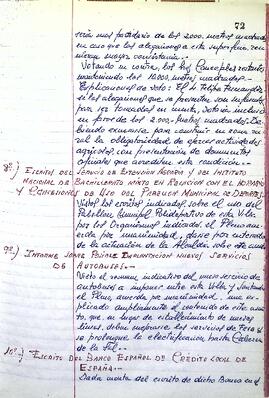 72
sería más partidario de los 2.000 metros cuadrados
en caso que los alegaciones a esta superficie
mayor consistencia.-
Votando en contra, los Concejales restantes
manteniendo los 10.000 metros cuadrados.-
Explicación de voto: El Sr. Felipe Fernández
si las alegaciones que se presenten son
para ser tomadas en cuenta, votaría
en favor de los 2.000 metros cuadrados.
para construir en zona
la obligatoriedad de ejercer actividades
agrícolas, con presentación de documentos
oficiales que acrediten esta condición.-
8º.-) Escrito del Servicio de Extensión Agraria y del Instituto
Nacional de Bachillerato Mixto en Relación con el Horario
y Condiciones de Uso del Pabellón Municipal de Deportes.-
Vistos los escritos indicados, sobre el uso del
Pabellón Municipal Polideportivo de esta Villa
por los Organismos indicados, el Pleno
por unanimidad,
de la actuación de la Alcaldía sobre este asunto
9º.-) Informe sobre Posible Implantación Nuevos Servicios
de Autobuses.-
Visto el informe indicativo del nuevo servicio de
autobuses a imponer entre esta Villa y Santander
el Pleno acuerda por unanimidad,
ampliamente el contenido de este asunto,
que, en lugar de establecimiento de nuevas
líneas, deben mejorarse los servicios de Feve
se prolongue la electrificación hasta Cabezón
de la Sal.-
10º.-) Escrito del Banco Español de Crédito Local de
España.-
Dada cuenta del escrito de dicho Banco en el